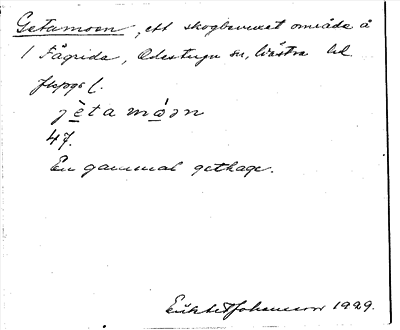 Getamoon, ett skogbevuxet område å
1 Fågrida, Ödestugu sn, Västra hd
Jkpgs l.
jètamòən
47.
En gammal gethage.
Johansson 1929.